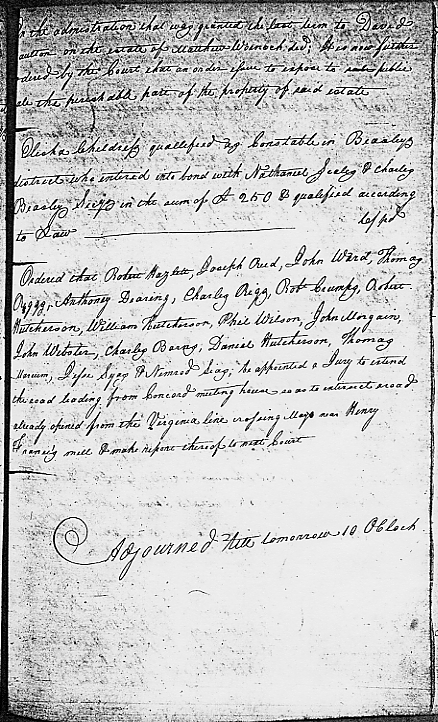 In the administration that was granted the last term to David
autton on the estate of Matthew Weinoch decd; It is now further
ordered by the Court that an order issue to expose to public
sale the perishable part of the property of said estate
Elisha Childress qualified as Constable in Beasleys
district who entered into bond with Nathaniel Scaley & Charles
Beasley in the sum of £ 250 & qualified according
to Law
Ordered that Robert Hazlett, Joseph Reed, John Ward, Thomas
Anthoney Dearing, Charles Rigg, Robt Crumps, Robert
Hutcherson, William Hutcherson, Phil Wilson, John Morgain,
John Webster, Charles Barns, Daniel Hutcherson, Thomas
& Nimrod be appointed a Jury to extend
the road leading from Concord meeting house so as to intersect a road
already opened from the Virginia line crossing Mayo near Henry
Francis mill & make report thereof to next Court
Adjourned till tomorrow 10 OClock